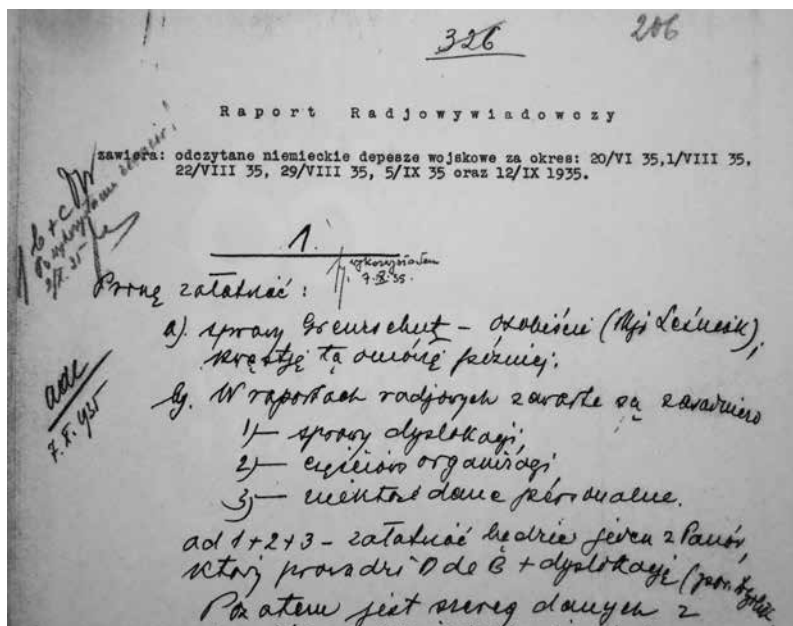 326
206
Raport Radjowywiadowczy
zawiera: odczytane niemieckie depesze wojskowe za okres: 20/VI 35,1/VIII 35,
22/VIII 35, 29/VIII 35, 5/IX 35 oraz 12/IX 1935.
b + c
Po wykorzystaniu
1.
wykorzystałem
7.X.35.
Proszę załatwić:
a). sprawy Grenzschutz – osobiście (Mjr Leśniak),
kwestję tą omówię później.
b). W raportach radjowych zawarte są zasadniczo
1) – sprawy dyslokacji,
2) – częściowo organizacji
3) – niektóre dane personalne.
aac
7.X.935
ad 1+2+3 – załatwiać będzie jeden z Panów,
który prowadzi O de B + dyslokację (por.
Poza tem jest szereg danych z